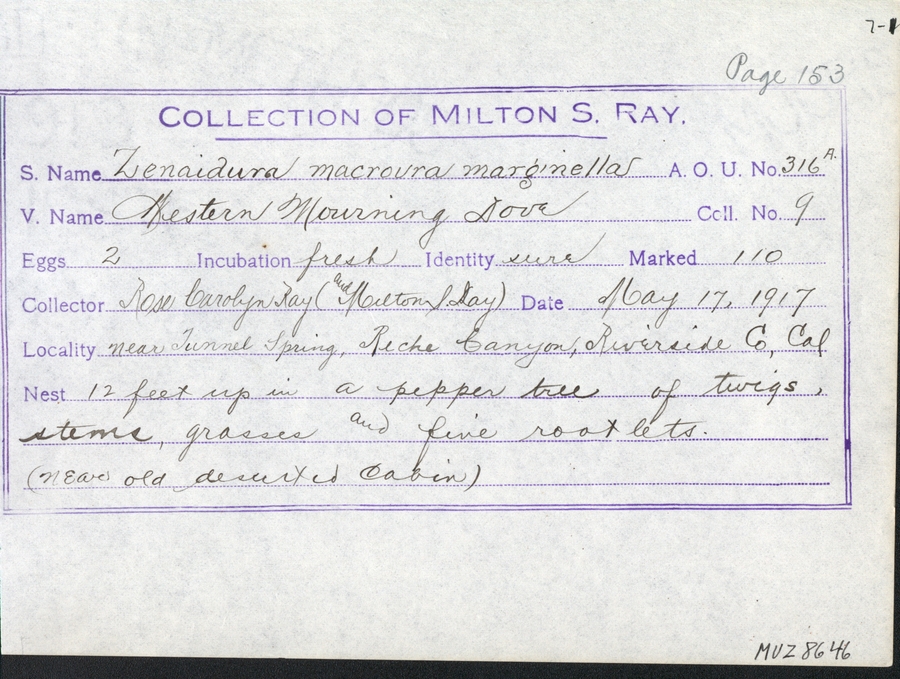 7-1
Page 153
COLLECTION OF MILTON S. RAY.
S. Name Zenaidura macroura marginella A. O. U. No. 316 A.
V. Name Western Mourning Dove Coll. No. 9
Eggs 2 Incubation fresh Identity sure Marked 110
Collector Rose Carolyn Ray (and Milton S. Ray) Date May 17, 1917
Locality near Tunnel Spring, Reche Canyon, Riverside Co, Cal
Nest 12 feet up in a pepper tree of twigs,
stems, grasses and fine rootlets.
(near old deserted cabin)
MVZ 8646